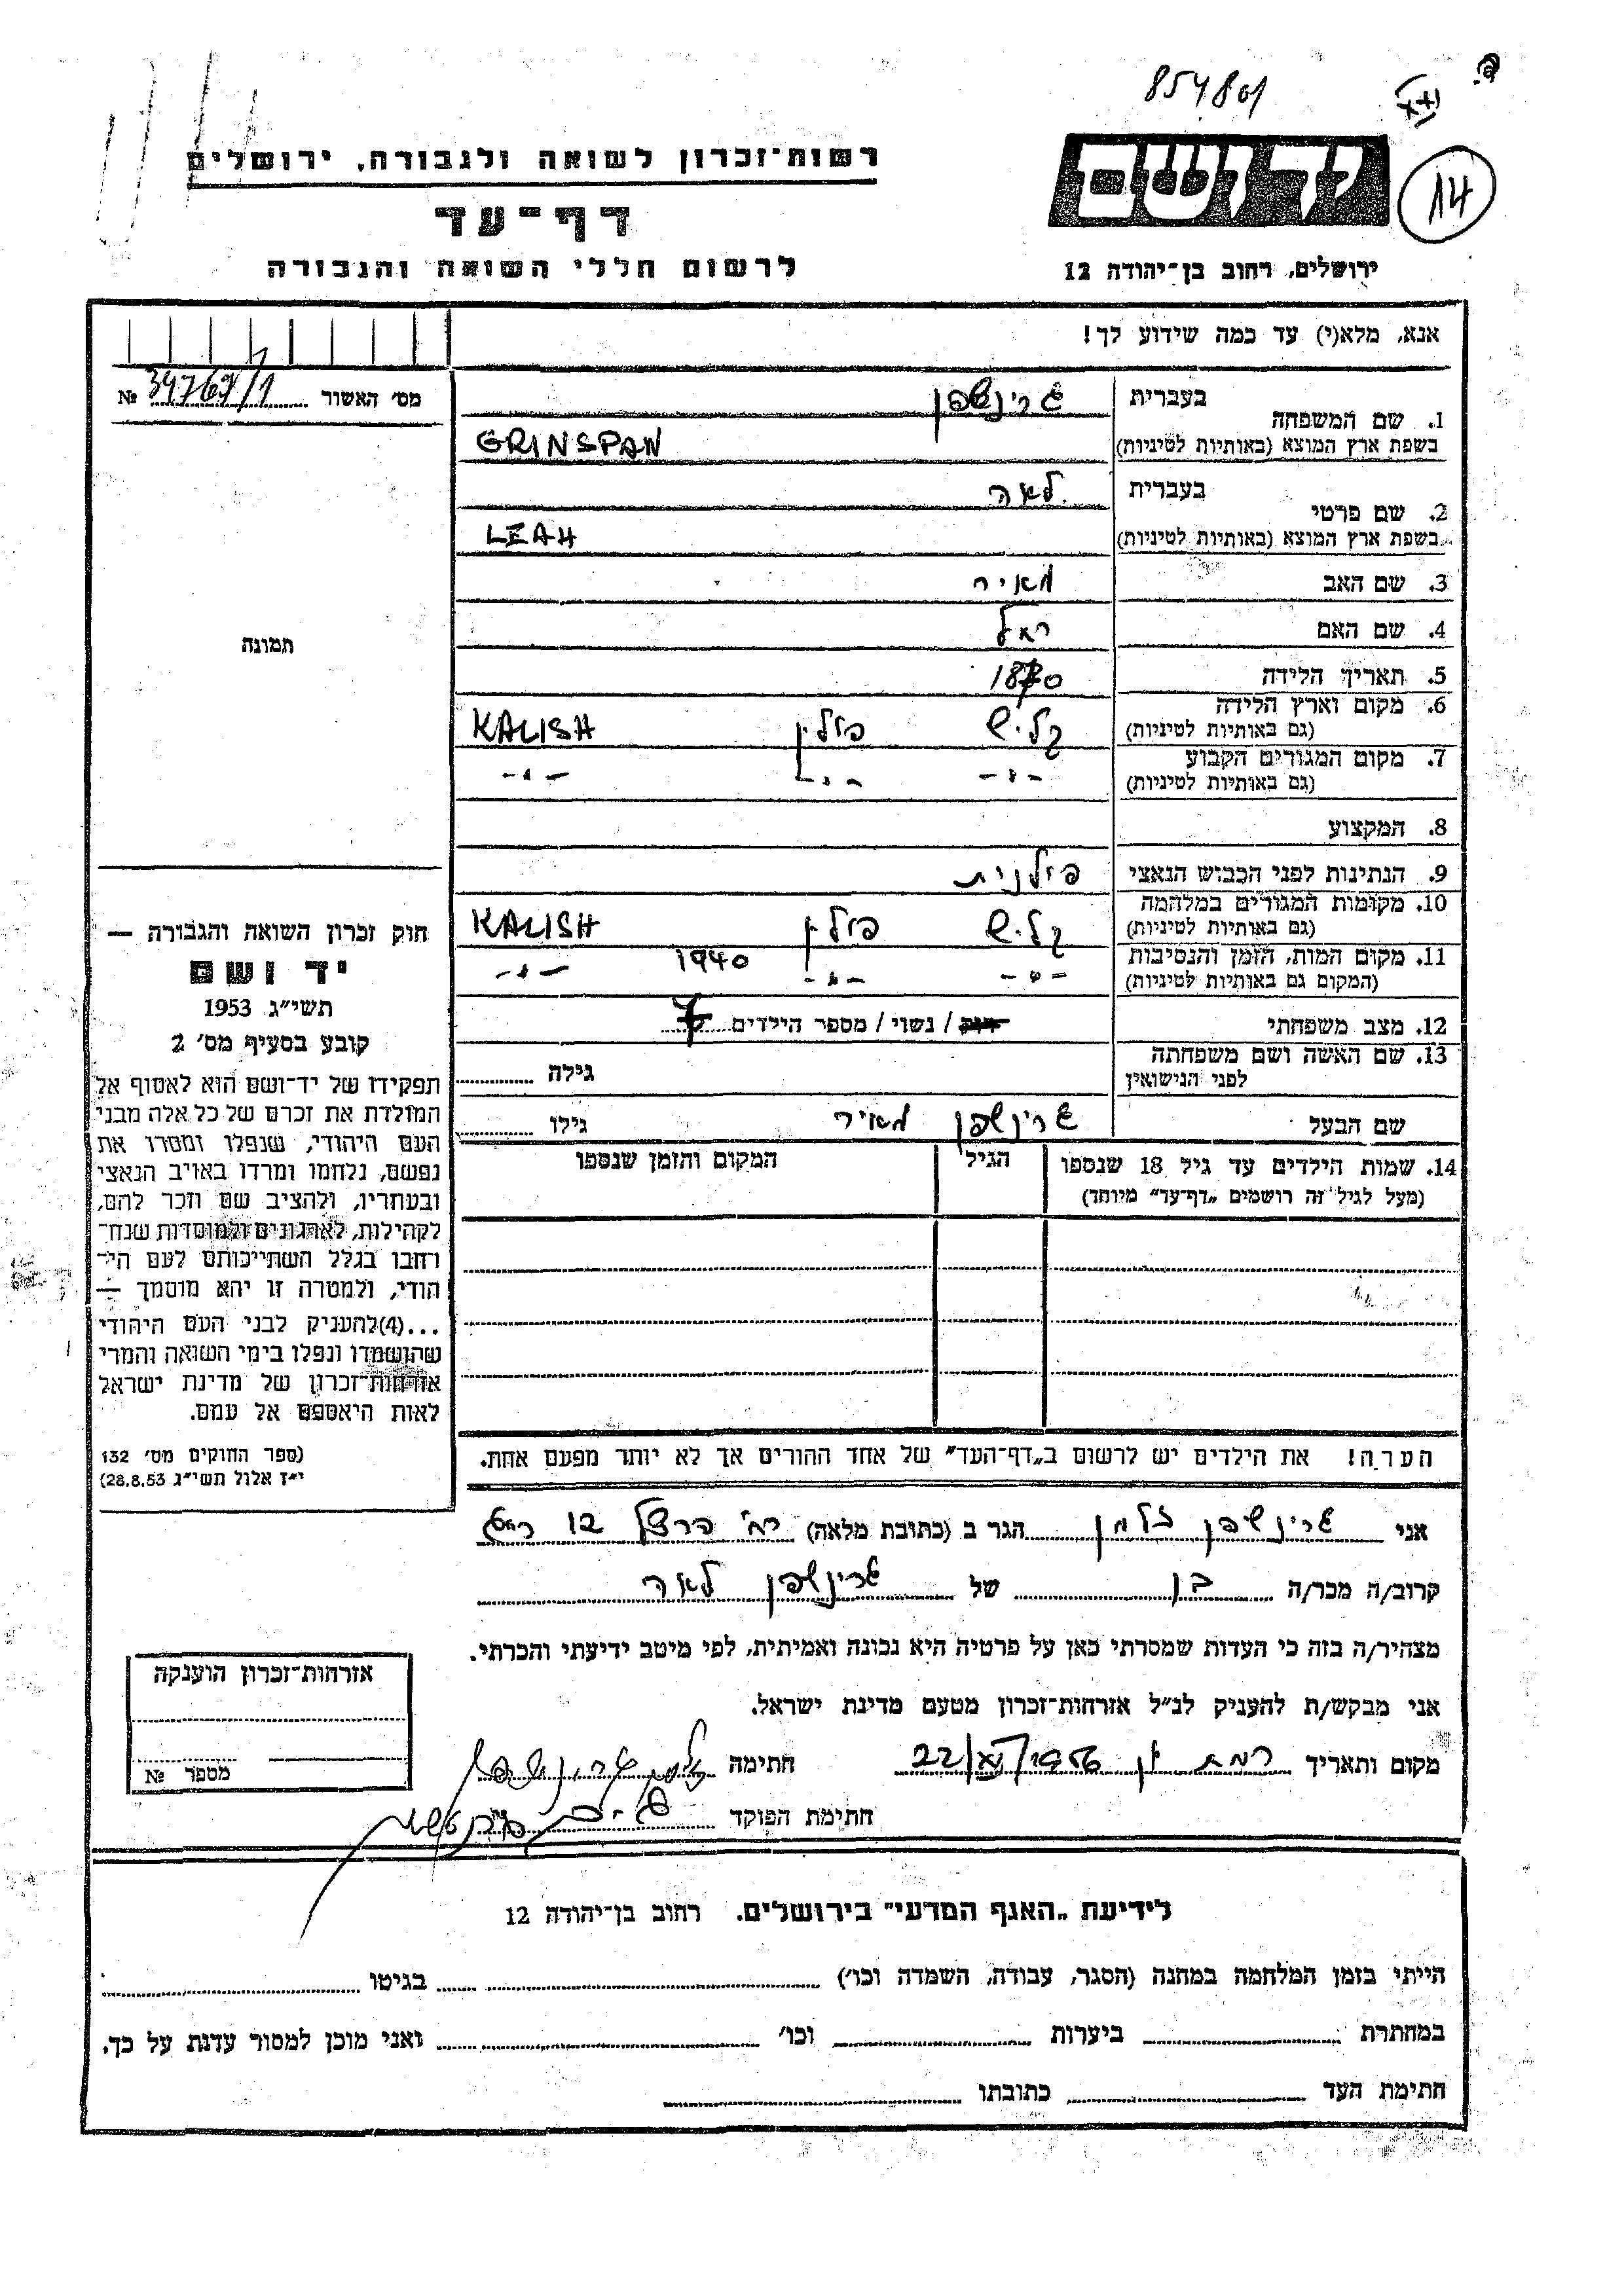 854801
14
רשות־זכרון לשואה ולגבורה, ירושלים
דף־עד
לרשום חללי השואה והגבורה
יד ושם
ירושלים, רחוב בן־יהודה 12
אנא, מלא(י) עד כמה שידוע לך!
מס׳ האשור № 34767/1
1. שם המשפחה בעברית גרינשפן
בשפת ארץ המוצא (באותיות לטיניות) GRINSPAN
2. שם פרטי בעברית לאה
בשפת ארץ המוצא (באותיות לטיניות) LEAH
3. שם האב מאיר
4. שם האם רחל
5. תאריך הלידה 1870
6. מקום וארץ הלידה (גם באותיות לטיניות) קליש פולין KALISH
7. מקום המגורים הקבוע (גם באותיות לטיניות) -"- -"- -"-
8. המקצוע
9. הנתינות לפני הכבוש הנאצי פולנית
10. מקומות המגורים במלחמה (גם באותיות לטיניות) קליש פולין KALISH
11. מקום המות, הזמן והנסיבות (המקום גם באותיות לטיניות) -"- -"- 1940 -"-
12. מצב משפחתי רווק / נשוי / מספר הילדים 7
13. שם האשה ושם משפחתה לפני הנישואין גילה
שם הבעל גרינשפן מאיר גילו
14. שמות הילדים עד גיל 18 שנספו הגיל המקום והזמן שנספו
(מעל לגיל זה רושמים „דף־עד״ מיוחד)
הערה! את הילדים יש לרשום ב„דף־העד״ של אחד ההורים אך לא יותר מפעם אחת.
תמונה
חוק זכרון השואה והגבורה —
יד ושם
תשי״ג 1953
קובע בסעיף מס׳ 2
תפקידו של יד־ושם הוא לאסוף אל
המולדת את זכרם של כל אלה מבני
העם היהודי, שנפלו ומסרו את
נפשם, נלחמו ומרדו באויב הנאצי
ובעוזריו, ולהציב שם וזכר להם,
לקהילות, לארגונים ולמוסדות שנח־
רחבו בגלל השתייכותם לעם הי־
הודי, ולמטרה זו יהא מוסמך —
...(4)להעניק לבני העם היהודי
שהושמדו ונפלו בימי השואה והמרי
אזרחות־זכרון של מדינת ישראל
לאות היאספם אל עמם.
(ספר החוקים מס׳ 132
י״ז אלול תשי״ג 28.8.53)
אני גרינשפן זלמן הגר ב (כתובת מלאה) רח׳ הרצל 12
קרוב/ה מכר/ה בן של גרינשפן לאה
מצהיר/ה בזה כי העדות שמסרתי כאן על פרטיה היא נכונה ואמיתית, לפי מיטב ידיעתי והכרתי.
אני מבקש/ת להעניק לנ״ל אזרחות־זכרון מטעם מדינת ישראל.
מקום ותאריך רמת גן 1956 22 חתימה
חתימת הפוקד
אזרחות־זכרון הוענקה
מספר №
לידיעת „האגף המדעי״ בירושלים. רחוב בן־יהודה 12
הייתי בזמן המלחמה במחנה (הסגר, עבודה, השמדה וכו׳) בגיטו
במחתרת ביערות וכו׳ ואני מוכן למסור עדות על כך.
חתימת העד כתובתו